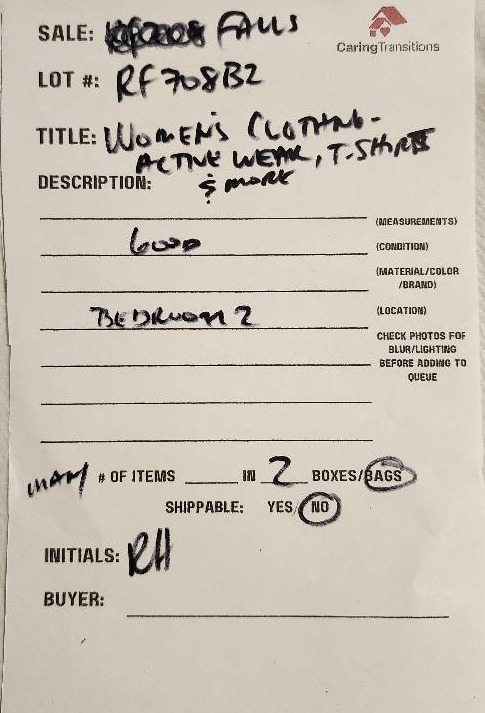 SALE: FALLS
CaringTransitions
LOT #: RF708B2
TITLE: WOMEN'S CLOTHING-
ACTIVE WEAR, T-SHIRTS
DESCRIPTION: & MORE
(MEASUREMENTS)
GOOD (CONDITION)
(MATERIAL/COLOR
/BRAND)
BEDROOM 2 (LOCATION)
CHECK PHOTOS FOR
BLUR/LIGHTING
BEFORE ADDING TO
QUEUE
MANY # OF ITEMS ____ IN 2 BOXES/BAGS
SHIPPABLE: YES/NO
INITIALS: RH
BUYER: